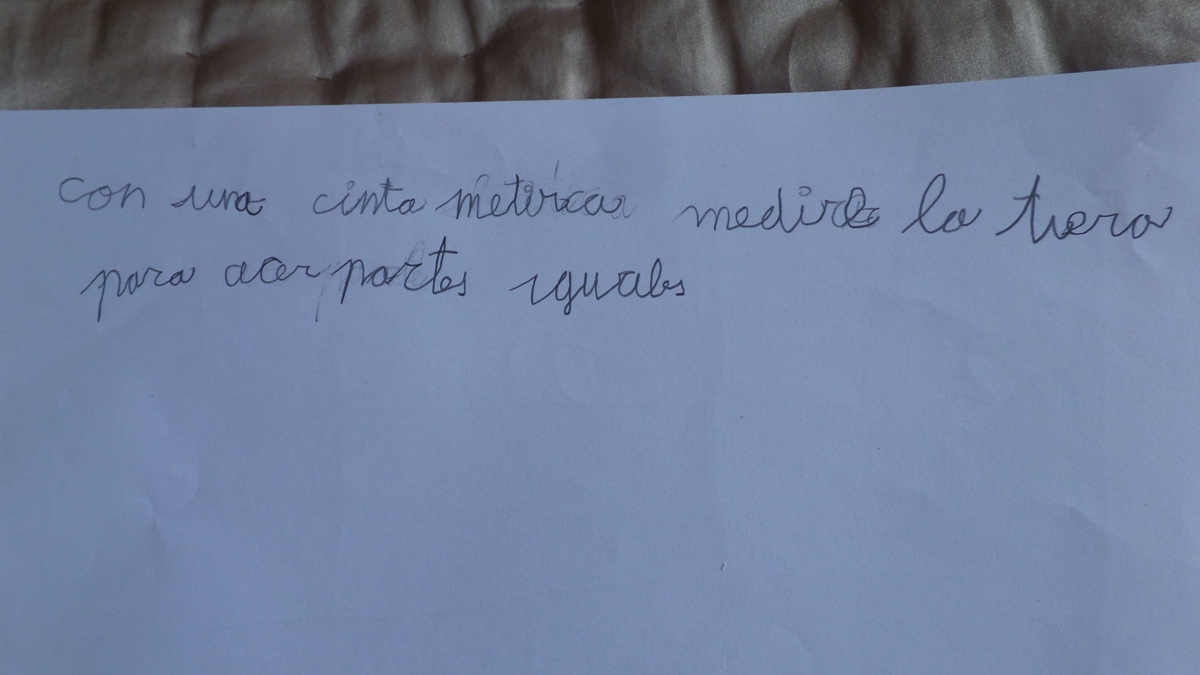 con una cinta metirca medire la tiera
para acer partes iguales